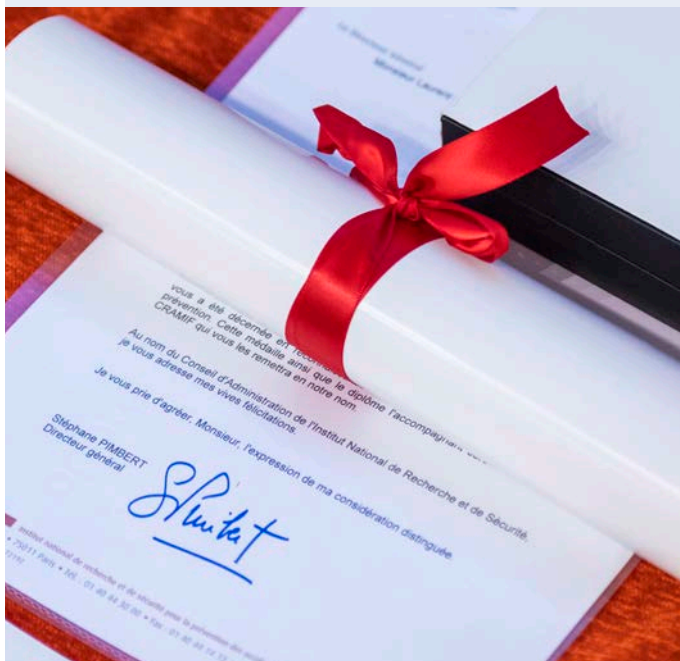 Le Directeur général
Monsieur Laurent
vous a été décernée en
prévention. Cette médaille ainsi que le diplôme l'accompagnant
CRAMIF qui vous les remettra en notre nom.
Au nom du Conseil d'Administration de l'Institut National de Recherche et de Sécurité,
je vous adresse mes vives félicitations.
Je vous prie d'agréer, Monsieur, l'expression de ma considération distinguée.
Stéphane PIMBERT
Directeur général
Institut national de recherche et de sécurité pour la prévention des
• 75011 Paris • Tél. : 01 40 44 30 00 • Fax : 01 40 44